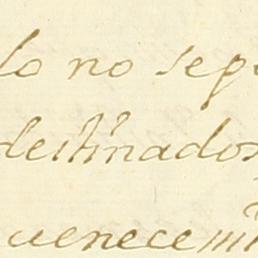 lo no sep
destinados
uenecem